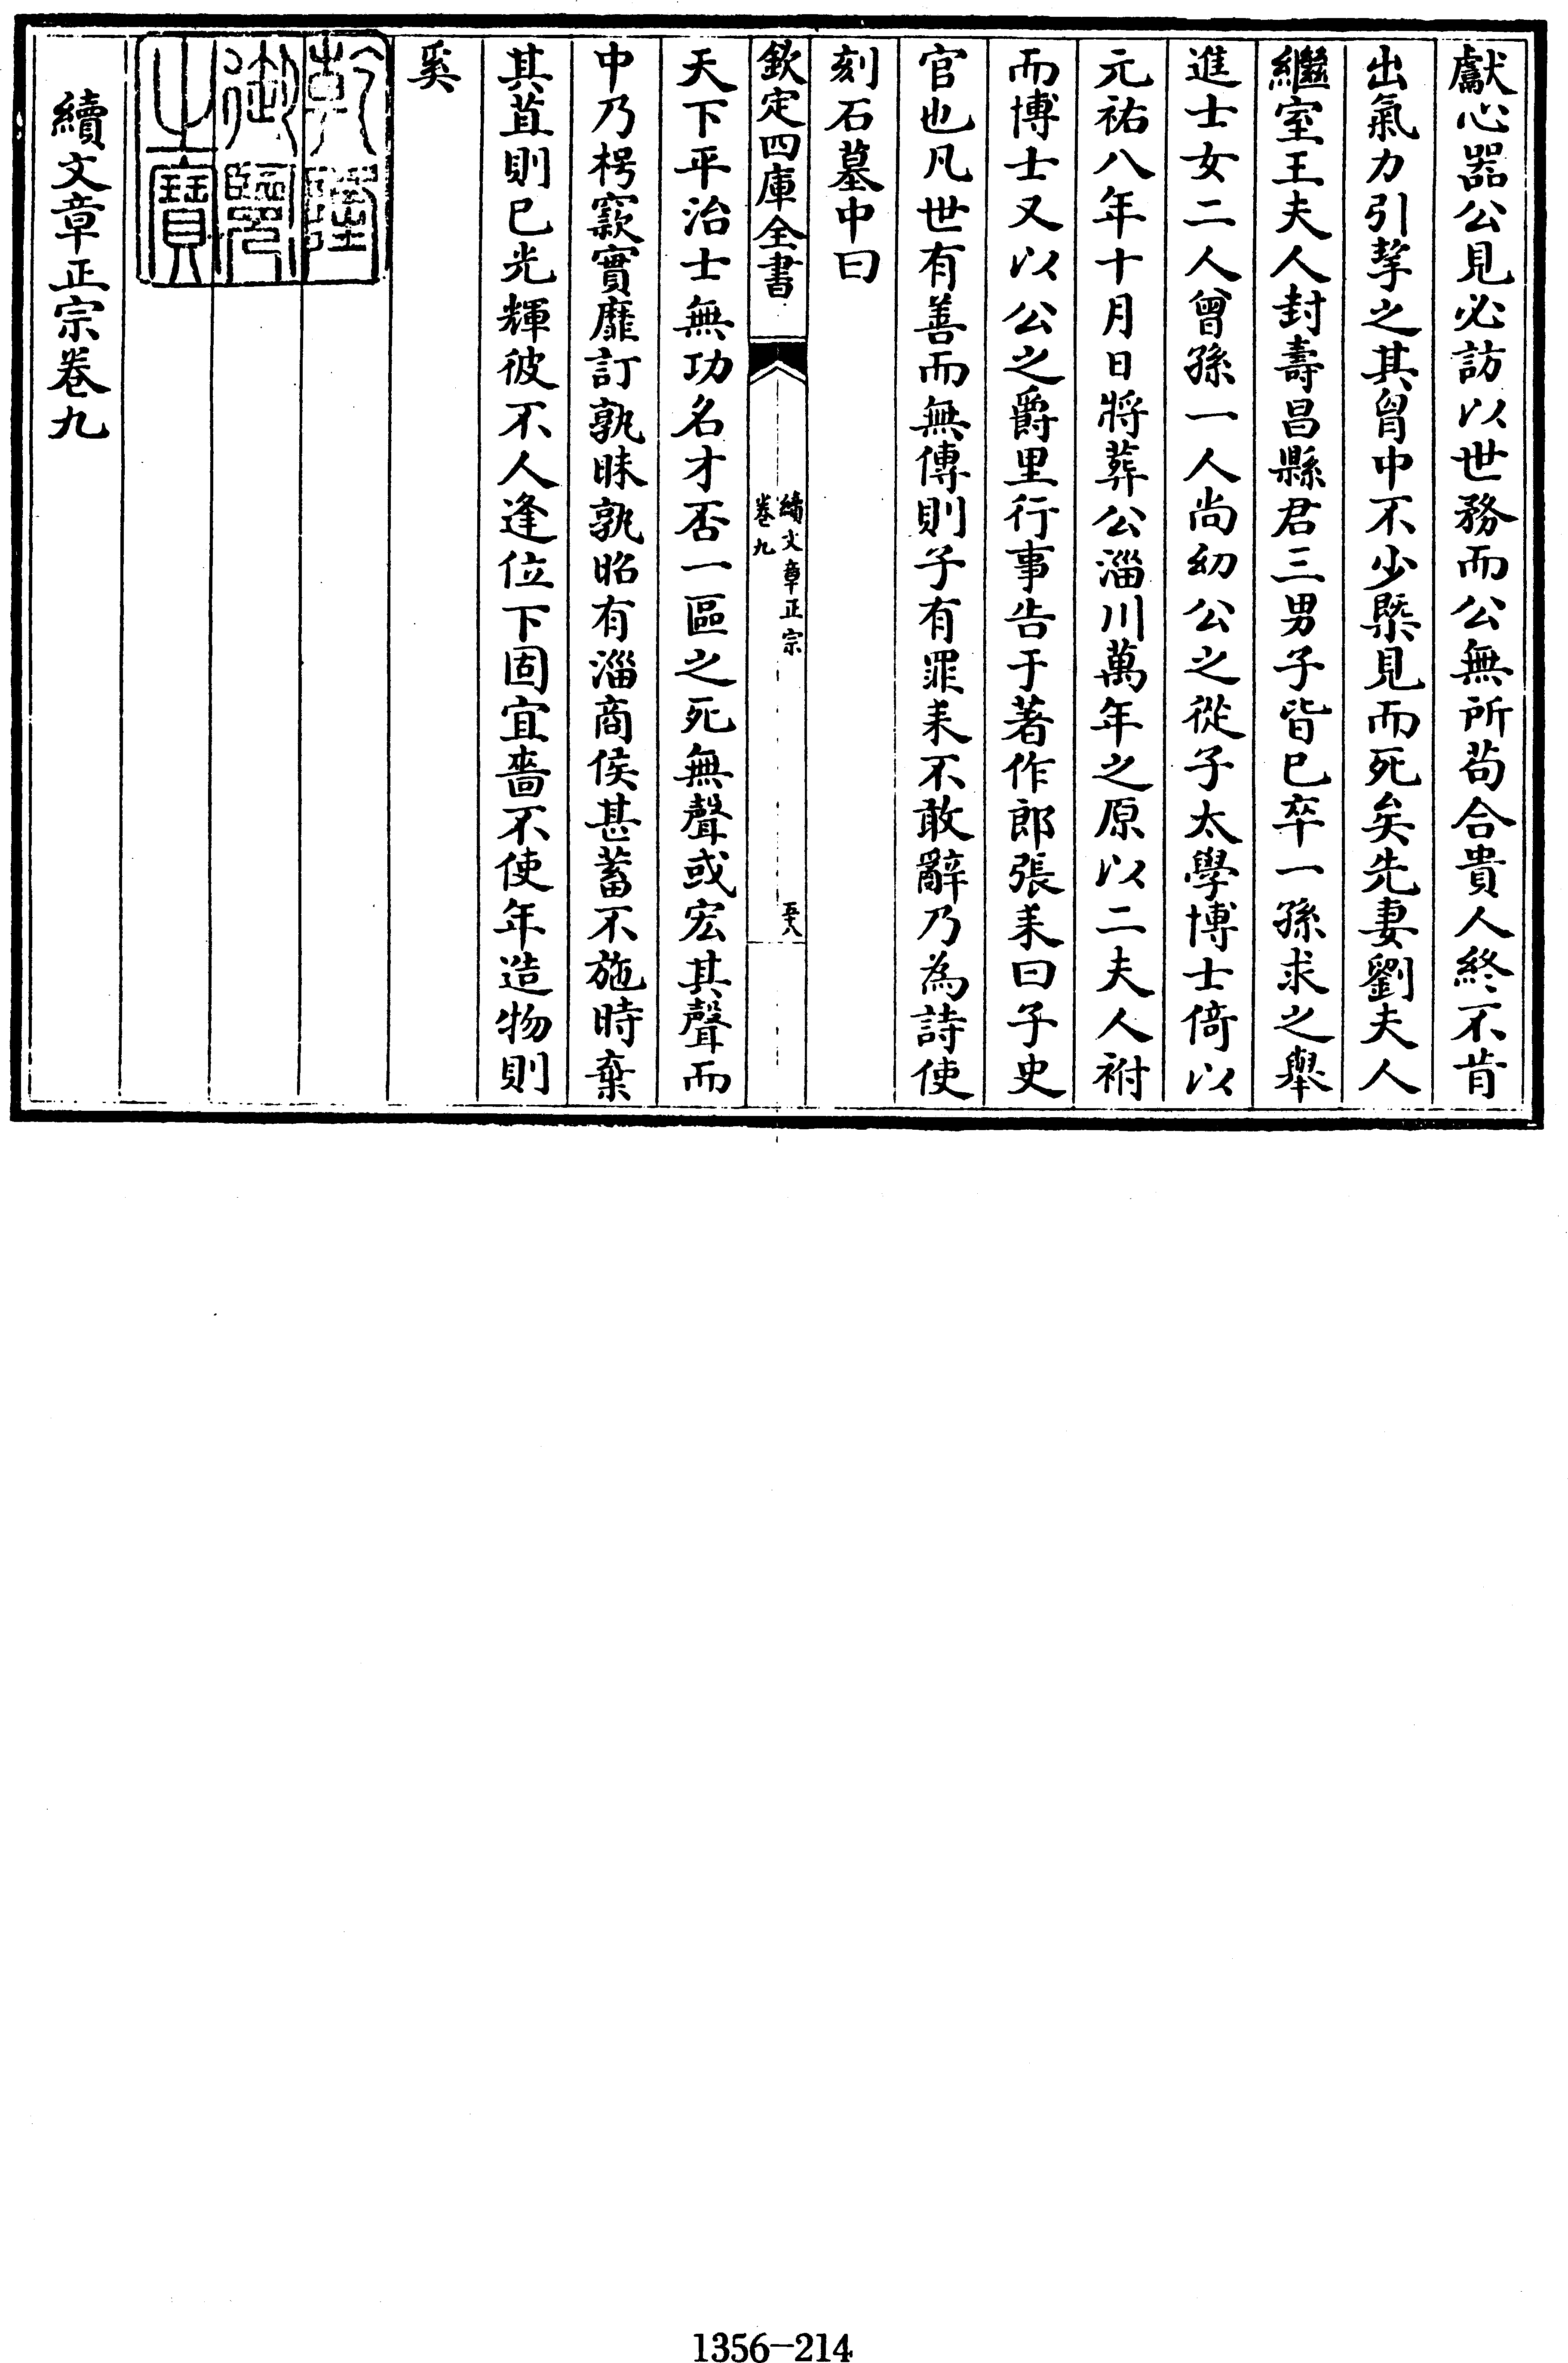 獻心器公見必訪以世務而公無所茍合貴人終不肯
出氣力引挈之其胷中不少槩見而死矣先妻劉夫人
繼室王夫人封壽昌縣君三男子皆已卒一孫求之舉
進士女二人曾孫一人尚幼公之從子太學博士倚以
元祐八年十月日將葬公淄川萬年之原以二夫人祔
而博士又以公之爵里行事告于著作郎張耒曰子史
官也凡世有善而無傳則子有罪耒不敢辭乃為詩使
刻石墓中曰
欽定四庫全書
續文章正宗
卷九
五十八
天下平治士無功名才否一區之死無聲或宏其聲而
中乃枵窾實靡訂孰昧孰昭有淄商侯甚蓄不施時棄
其苴則已光輝彼不人逢位下固宜嗇不使年造物則
奚
乾隆
御覽
之寶
續文章正宗卷九
1356-214